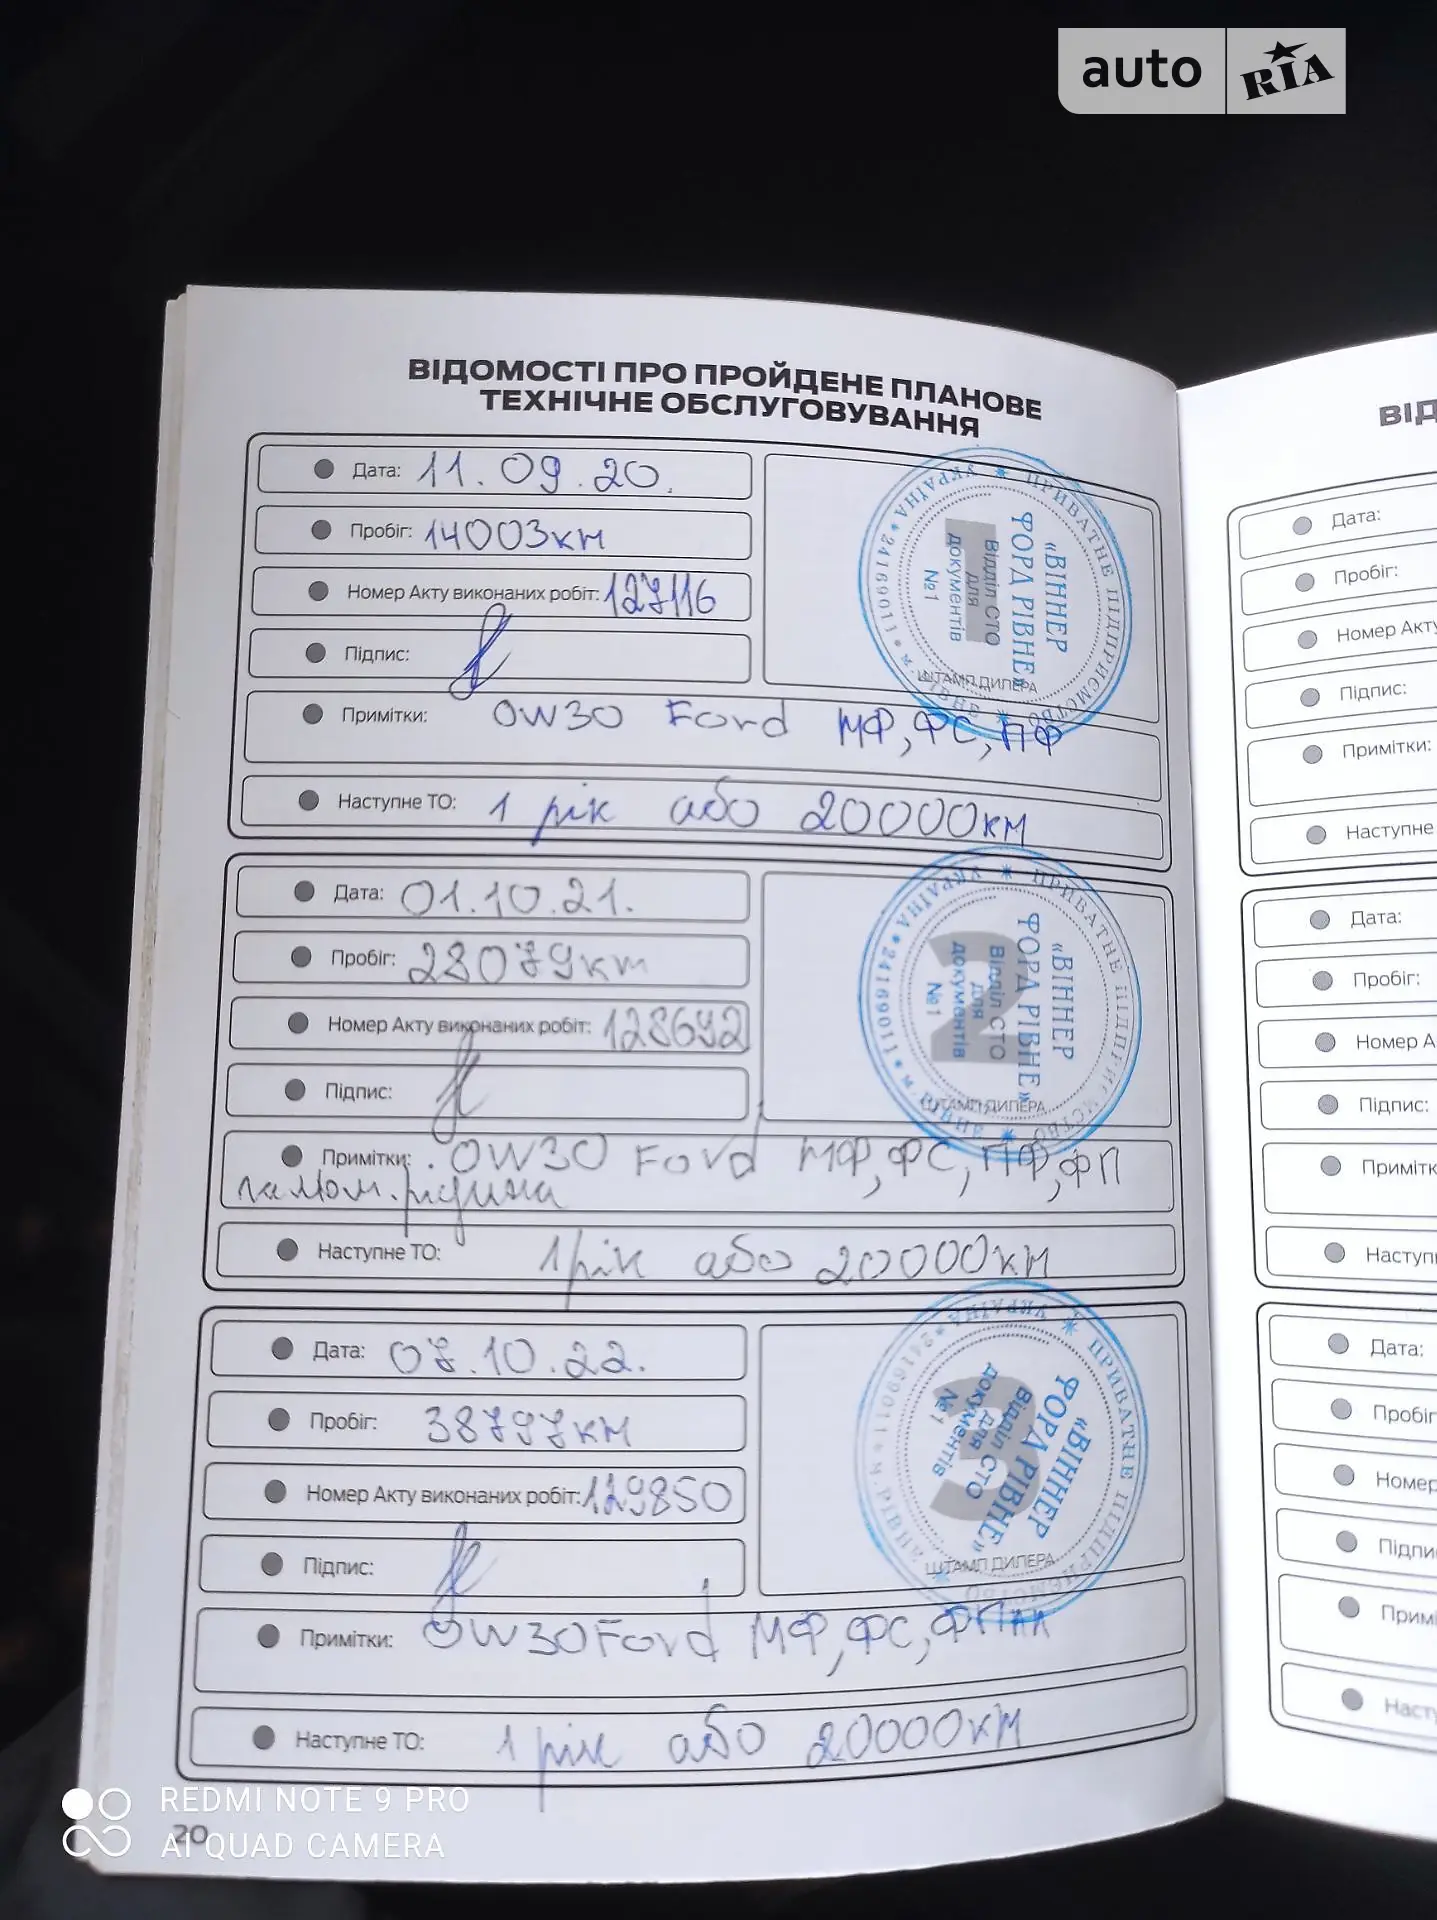 auto RIA
ВІДОМОСТІ ПРО ПРОЙДЕНЕ ПЛАНОВЕ
ТЕХНІЧНЕ ОБСЛУГОВУВАННЯ
Дата: 11.09.20.
Пробіг: 14003км
Номер Акту виконаних робіт: 127116
Підпис:
ПРИВАТНЕ ПІДПРИЄМСТВО * м. РІВНЕ * 24169011 * УКРАЇНА *
«ВІННЕР
ФОРД РІВНЕ»
Відділ СТО
для
документів
№1
ШТАМП ДИЛЕРА
Примітки: 0W30 Ford МФ, ФС, ПФ
Наступне ТО: 1 рік або 20000км
Дата: 01.10.21.
Пробіг: 28079км
Номер Акту виконаних робіт: 128692
Підпис:
2
ПРИВАТНЕ ПІДПРИЄМСТВО * м. РІВНЕ * 24169011 * УКРАЇНА *
«ВІННЕР
ФОРД РІВНЕ»
Відділ СТО
для
документів
№1
ШТАМП ДИЛЕРА
Примітки: 0W30 Ford МФ, ФС, ПФ, ФП
гальм. рідина
Наступне ТО: 1 рік або 20000км
Дата: 07.10.22.
Пробіг: 38797км
Номер Акту виконаних робіт: 129850
Підпис:
3
ПРИВАТНЕ ПІДПРИЄМСТВО * м. РІВНЕ * 24169011 * УКРАЇНА *
«ВІННЕР
ФОРД РІВНЕ»
Відділ СТО
для
документів
№1
ШТАМП ДИЛЕРА
Примітки: 0W30 Ford МФ, ФС,
Наступне ТО: 1 рік або 20000км
20
ВІД
Дата:
Пробіг:
Номер Акту
Підпис:
Примітки:
Наступне
Дата:
Пробіг:
Номер А
Підпис:
Примітк
Наступн
Дата:
Пробіг
Номер
Підпи
Примі
Наст
REDMI NOTE 9 PRO
AI QUAD CAMERA